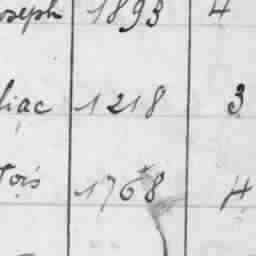 oseph 1893 4
liac 1218 3
Tois 1768 4